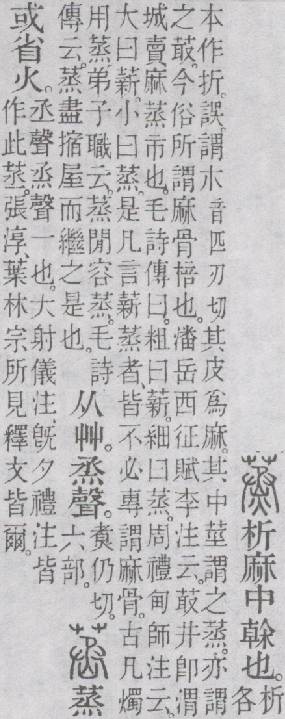 蒸析麻中榦也。析各
本作折。誤。謂木音匹刃切其皮爲麻。其中莖謂之蒸。亦謂
之菆。今俗所謂麻骨棓也。潘岳西征賦李注云。菆井卽渭
城賣麻蒸市也。毛詩傳曰。粗曰薪。細曰蒸。周禮甸師注云、
大曰薪。小曰蒸。是凡言薪蒸者、皆不必專謂麻骨。古凡燭
用蒸。弟子職云。蒸閒容蒸。毛詩
傳云。蒸盡摍屋而繼之是也。
从艸。烝聲。煑仍切。六部。蒸
或省火。丞聲烝聲一也。大射儀注旣夕禮注皆
作此蒸。張淳、葉林宗所見釋文皆爾。